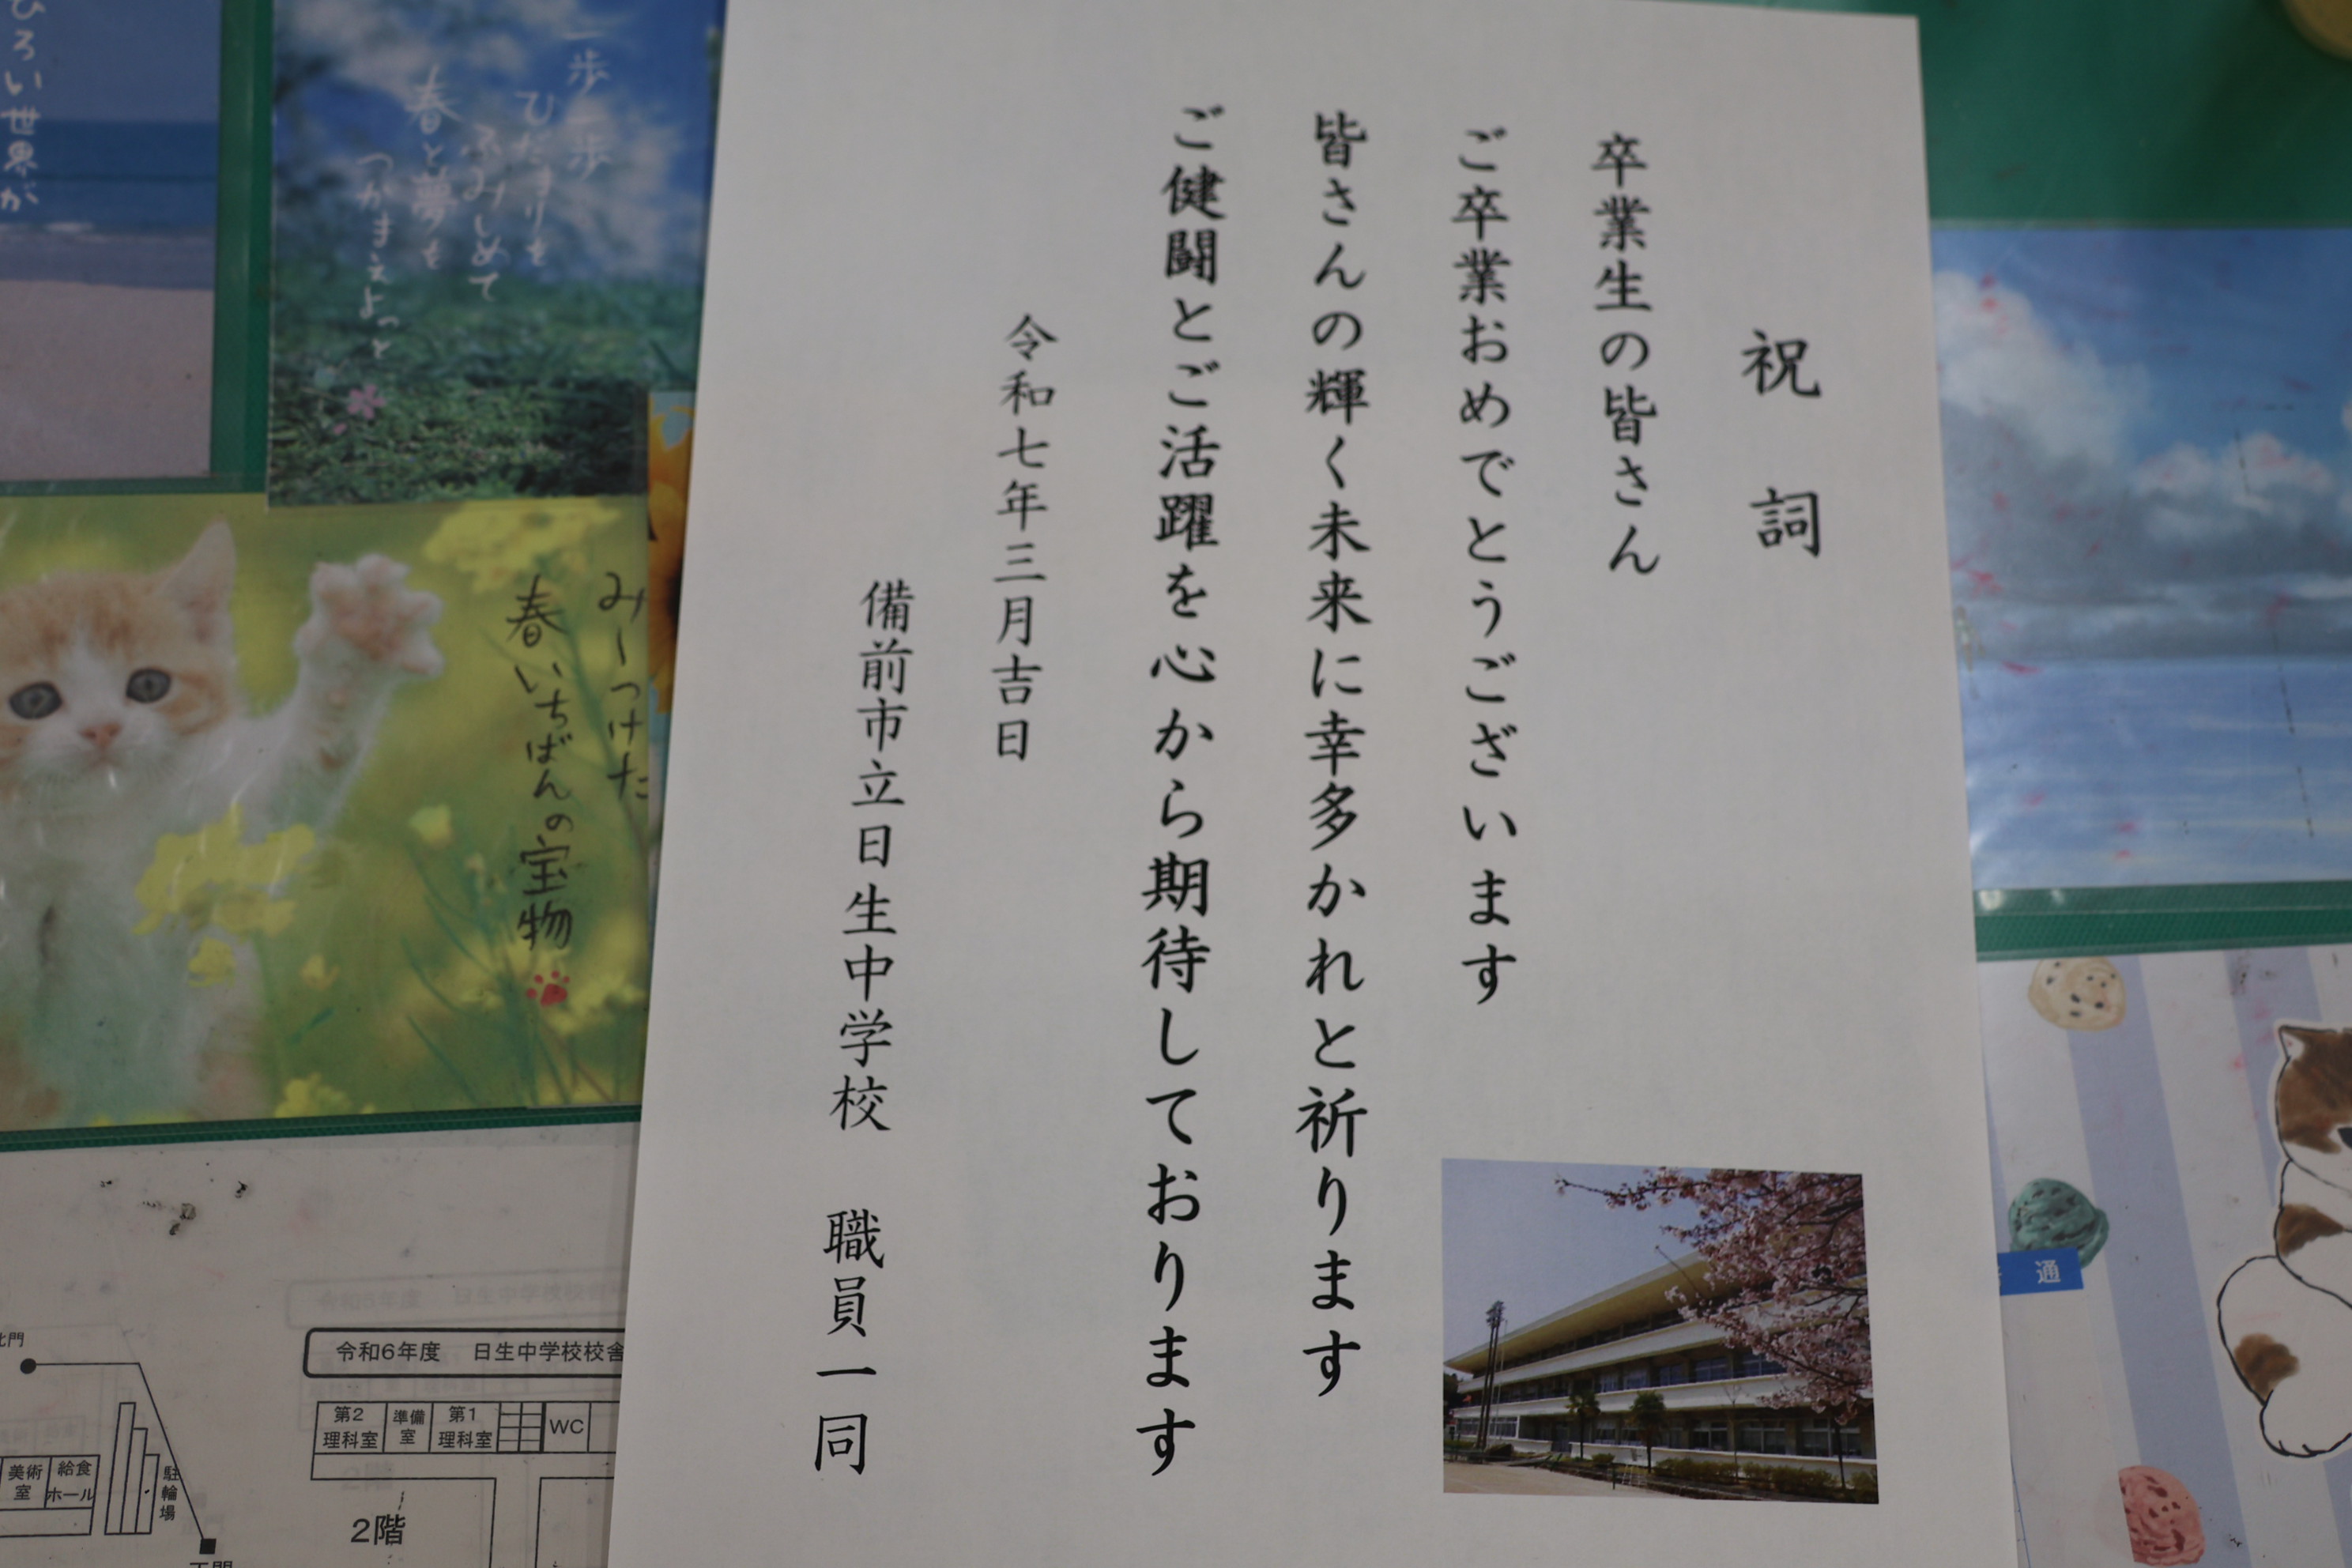 祝詞
卒業生の皆さん
ご卒業おめでとうございます
皆さんの輝く未来に幸多かれと祈ります
ご健闘とご活躍を心から期待しております
令和七年三月吉日
備前市立日生中学校　職員一同
一歩一歩
ひだまりを
ふみしめて
春と夢を
つかまえよっと
ひろい世界が
みーつけた
春いちばんの宝物
令和6年度　日生中学校校舎
第2理科室
準備室
第1理科室
WC
2階
美術室
給食ホール
駐輪場
北門
通